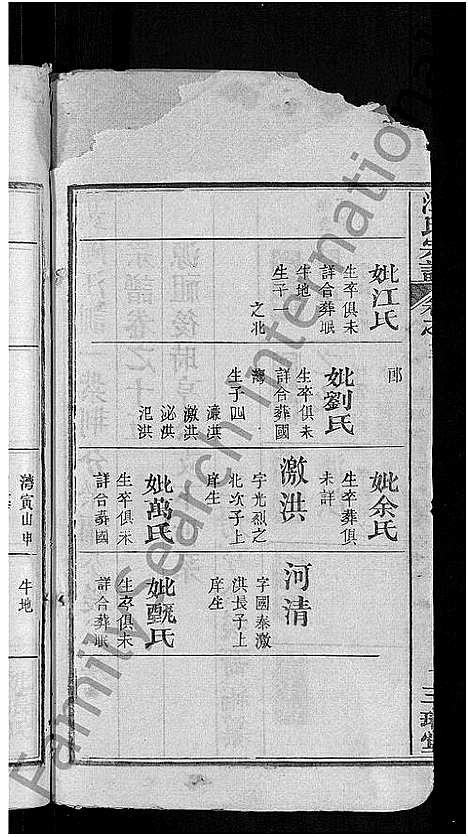 妣江氏
生卒俱未
詳合葬眠
牛地
生子一
之北
郎
妣劉氏
生卒俱未
詳合葬國
灣
生子四
濂洪
激洪
泌洪
汜洪
妣余氏
生卒葬俱
未詳
激洪
字光烈之
北次子上
庠生
妣萬氏
生卒俱未
詳合葬國
河清
字國泰激
洪長子上
庠生
妣甄氏
生卒俱未
詳合葬眠
灣寅山申
牛地
FamilySearch International